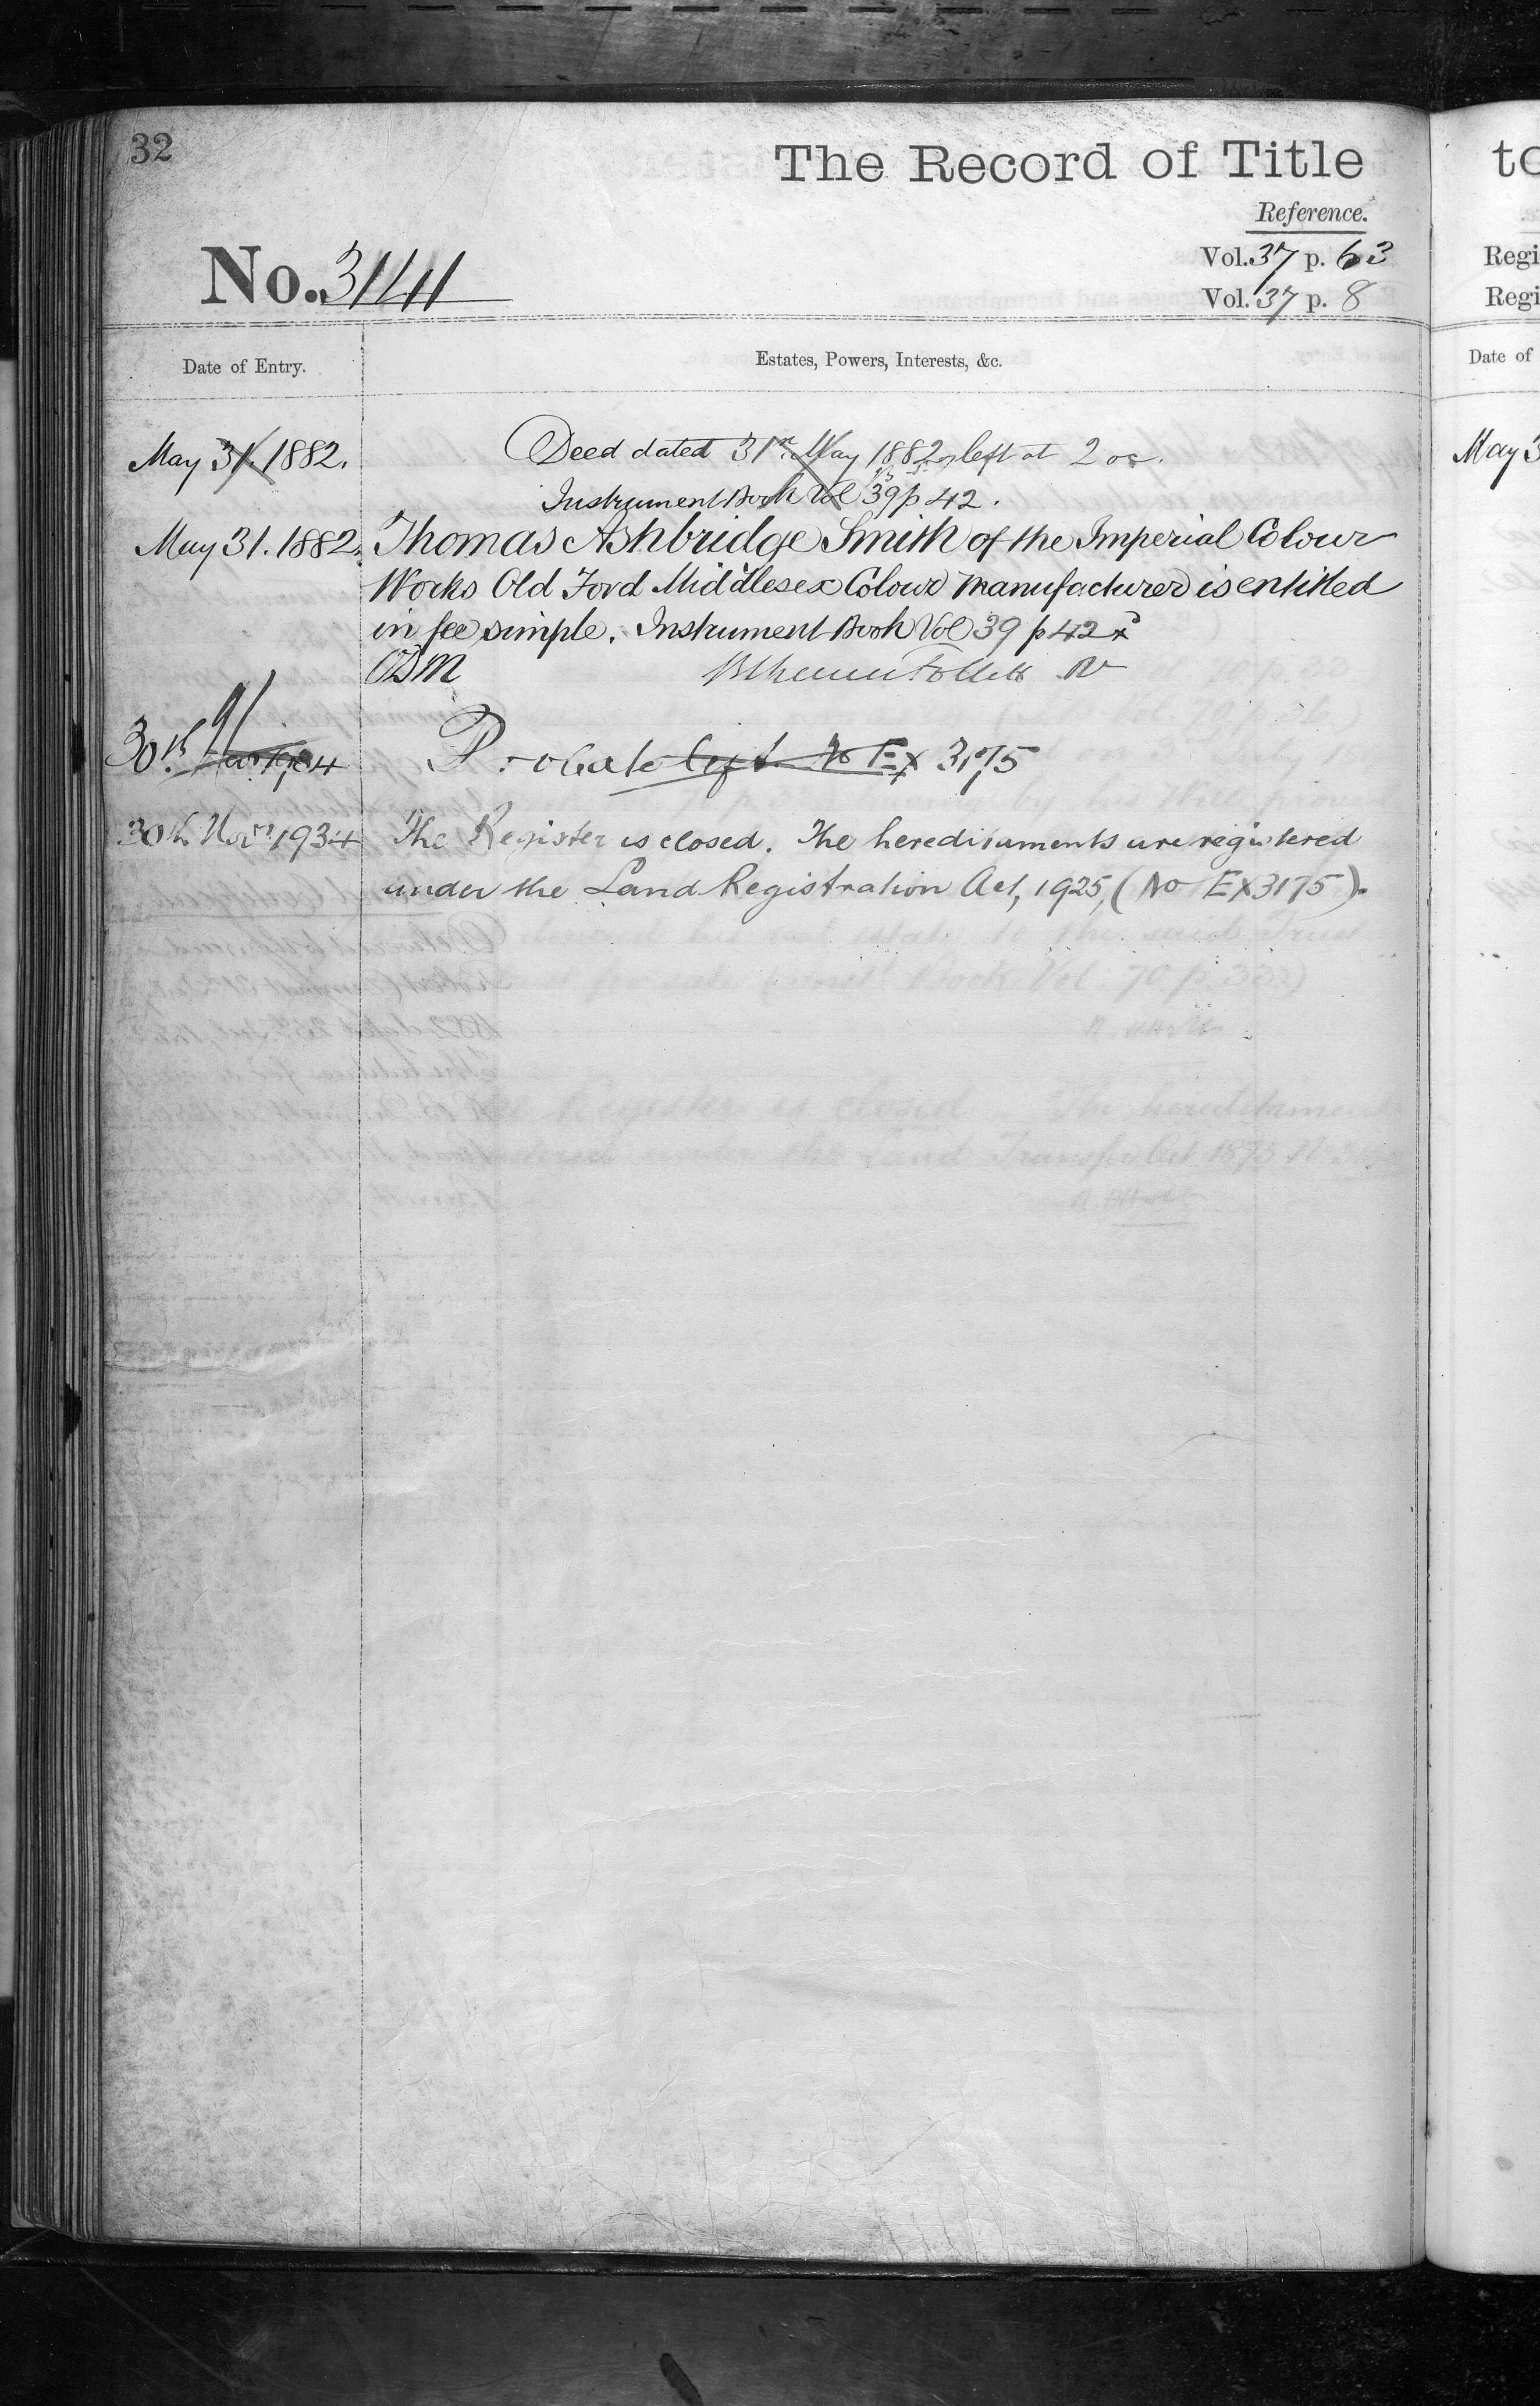 32
The Record of Title
Reference.
No. 3141
Vol. 37 p. 63
Vol. 37 p. 8
Date of Entry.
Estates, Powers, Interests, &c.
May 31. 1882.
Deed dated 31st May 1882 left at 2 oc.
Instrument Book Vol 39 p 42.
May 31. 1882.
Thomas Ashbridge Smith of the Imperial Colour
Works Old Ford Middlesex Colour Manufacturer is entitled
in fee simple. Instrument Book Vol 39 p 42
30th
Probate left No EX 3175
30th Novr 1934
The Register is closed. The hereditaments are registered
under the Land Registration Act, 1925, (No EX3175).
to
Regi
Regi
Date of
May 3